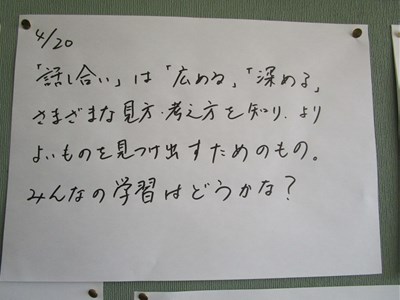 4/20
「話し合い」は「広める」「深める」
さまざまな見方・考え方を知り、より
よいものを見つけ出すためのもの。
みんなの学習はどうかな?